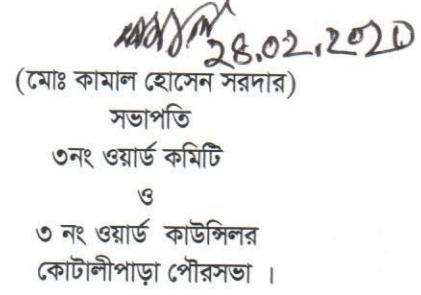 28.02.2020
(মোঃ কামাল হোসেন সরদার)
সভাপতি
৩নং ওয়ার্ড কমিটি
ও
৩ নং ওয়ার্ড কাউন্সিলর
কোটালীপাড়া পৌরসভা ।